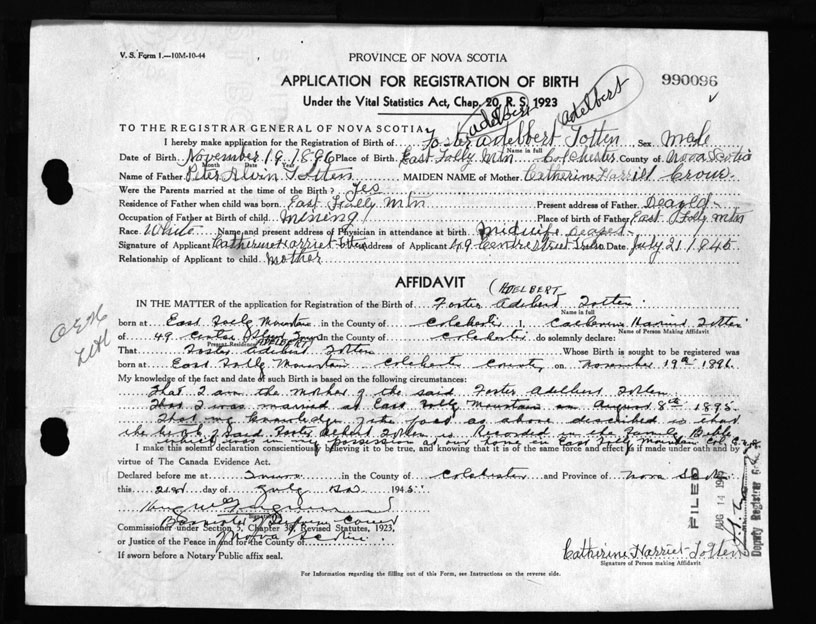 V. S. Form 1.—10M-10-44
PROVINCE OF NOVA SCOTIA
APPLICATION FOR REGISTRATION OF BIRTH
990096
Under the Vital Statistics Act, Chap. 20, R. S. 1923
adelbert Adelbert
TO THE REGISTRAR GENERAL OF NOVA SCOTIA
I hereby make application for the Registration of Birth of Foster Adelbert Totten Sex Male
Name in full
Date of Birth November 19, 1896 Place of Birth East Folly Mtn Colchester County of Nova Scotia
Month Date Year
Name of Father Peter Alvin Totten MAIDEN NAME of Mother Catherine Harriet Crowe
Were the Parents married at the time of the Birth? Yes
Residence of Father when child was born East Folly Mtn Present address of Father
Occupation of Father at Birth of child Mining Place of birth of Father East Folly Mtn
Race White Name and present address of Physician in attendance at birth Midwife
Signature of Applicant Catherine Harriet Totten Address of Applicant 49 Centre Street Truro Date July 21 1945
Relationship of Applicant to child Mother
AFFIDAVIT
(ADELBERT
IN THE MATTER of the application for Registration of the Birth of Foster Adelbert Totten
Name in full
born at East Folly Mountain in the County of Colchester I, Catherine Harriet Totten
Name of Person Making Affidavit
of 49 Centre Street Truro in the County of Colchester do solemnly declare:
Present Residence
ADELBERT
That Foster Adelbert Totten Whose Birth is sought to be registered was
born at East Folly Mountain Colchester County on November 19th 1896.
My knowledge of the fact and date of such Birth is based on the following circumstances:
That I am the mother of the said Foster Adelbert Totten
That I was married at East Folly Mountain on August 8th 1895.
That my knowledge of the fact as above described is that
the birth of said Foster Adelbert Totten is recorded in the Family Bible
which is in my possession at our home in East Folly Mountain Col. Co. N.S.
I make this solemn declaration conscientiously believing it to be true, and knowing that it is of the same force and effect as if made under oath and by
virtue of The Canada Evidence Act.
Declared before me at Truro in the County of Colchester and Province of Nova Scotia
this 21st day of July 1945
Commissioner under Section 5, Chapter 38, Revised Statutes, 1923,
or Justice of the Peace in and for the County of
Nova Scotia
If sworn before a Notary Public affix seal.
Catherine Harriet Totten
Signature of Person making Affidavit
For Information regarding the filling out of this Form, see Instructions on the reverse side.
FILED
AUG 14 1945
Deputy Registrar